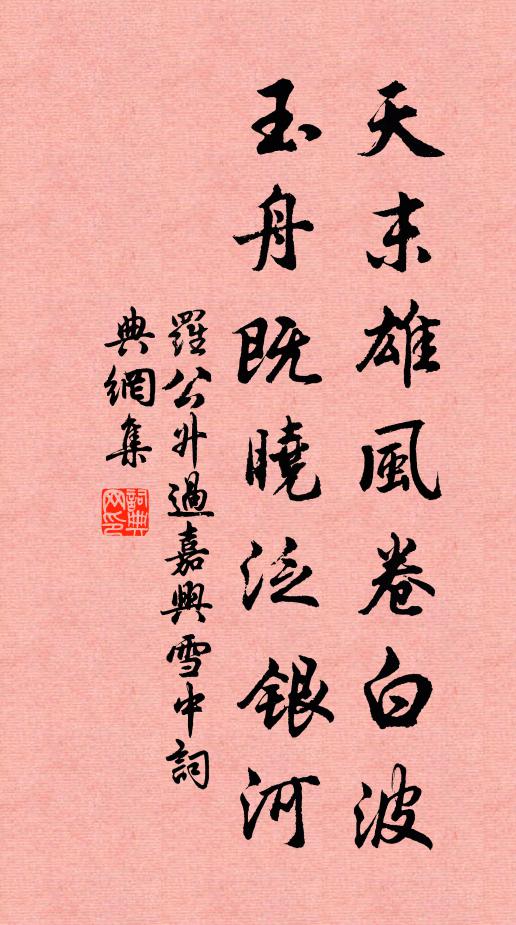 天末雄風卷白波
玉舟既曉泛銀河
羅公外過嘉興雪中詞
典網集
詞典
網印